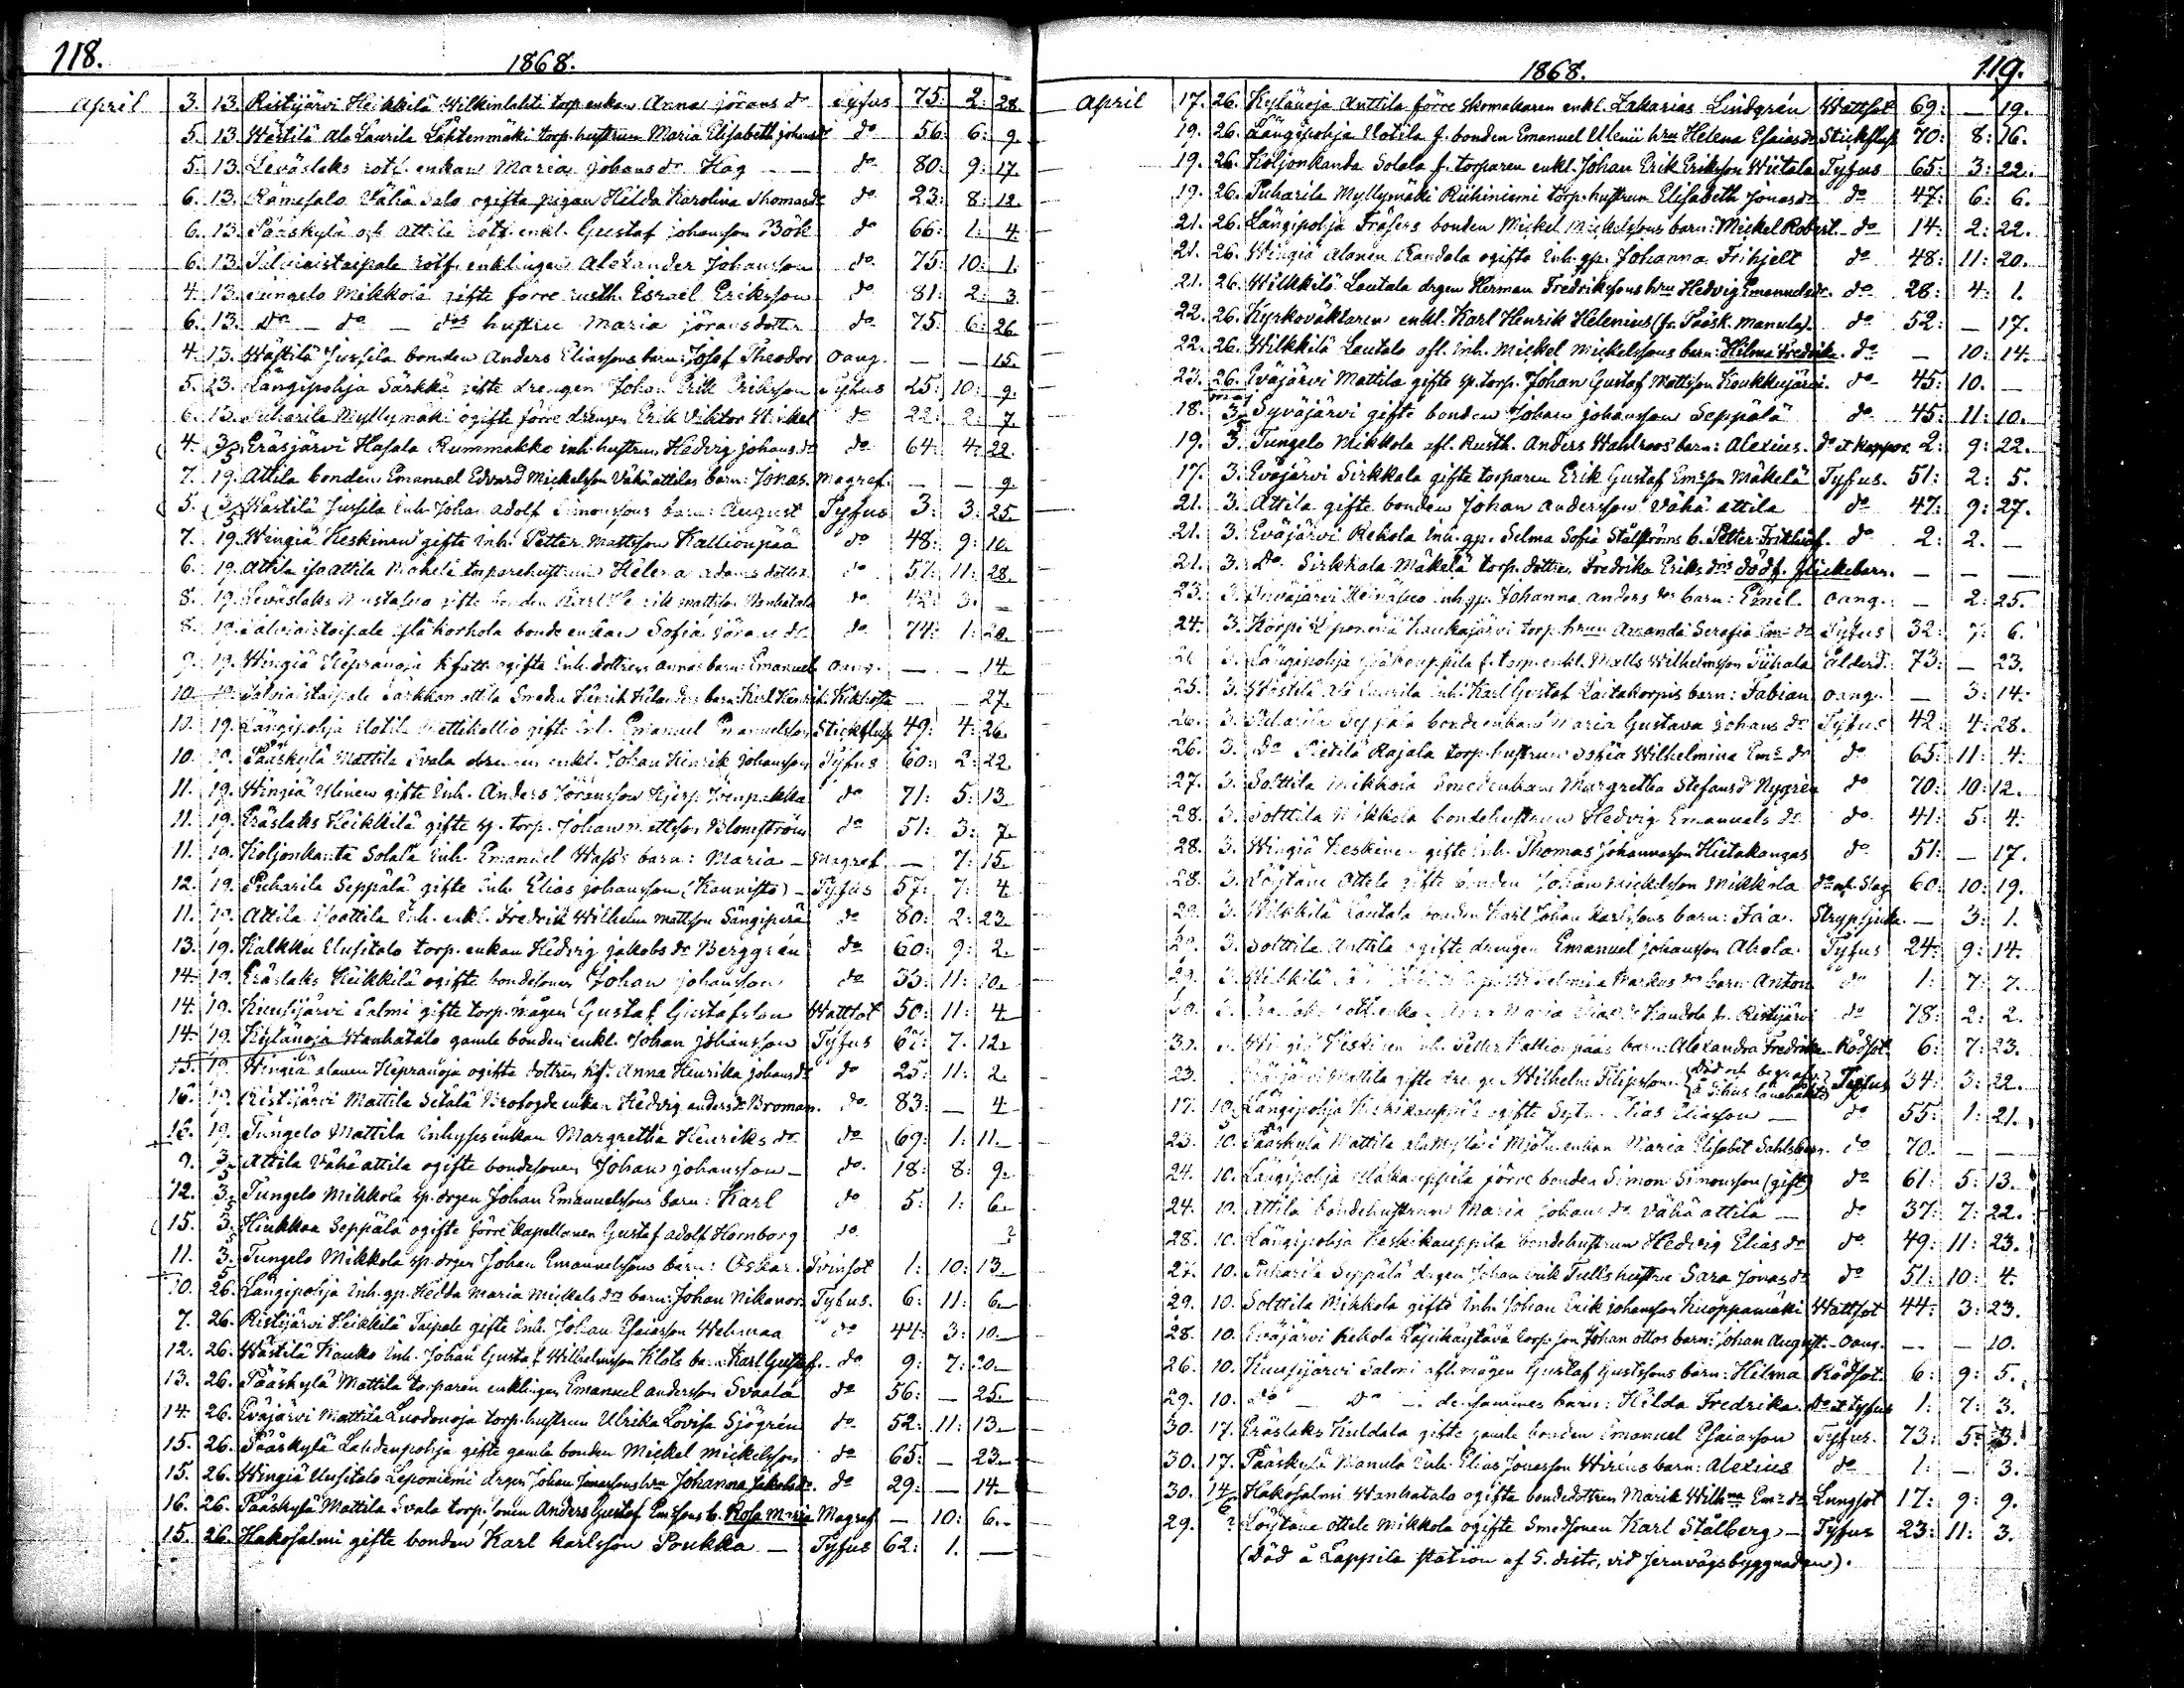 118.
1868.
April 3. 13. Ristijärvi Heikkilä Wilkinlahti torp. enkan Anna Jörans dr Tyfus 75: 2: 28
5. 13. Wästilä Ala Laurila Lähtenmäki torp. hustrun Maria Elisabeth Johans dr do 56: 6: 9
5. 13. Leväslaks rotf. enkan Maria Johans dr Hög do 80: 9: 17
6. 13. Rämesalo Vähä Salo ogifta pigan Hilda Karolina Thomas dr do 23: 8: 12
6. 13. Pääskylä Attila rotf. enkl. Gustaf Johansson Böök do 66: 1: 4
6. 13. Talviaistaipale rotf. enklingen Alexander Johansson do 75: 10: 1
4. 13. Tungelo Mikkola gifte förre rusth. Esrael Eriksson do 81: 2: 3
6. 13. Do — do — dos hustru Maria Jörans dotter do 75: 6: 26
4. 13. Wästilä Jussila bonden Anders Eliassons barn: Josef Theodor oang. — — 15
5. 13. Längipohja Särkkä gifte drengen Johan Erik Eriksson Tyfus 25: 10: 9
6. 13. Puharila Myllymäki ogifte förre drengen Erik Viktor do 22: 2: 7
4. 3/5 Eräsjärvi Hasala Rummakko inh. hustrun Hedvig Johans dr do 64: 4: 22
7. 19. Attila bonden Emanuel Edvard Mickelsson Vähäattilas barn: Jonas. Magref. — — 9
5. 3/5 Wästilä Jussila Inh. Johan Adolf Simonssons barn: August Tyfus 3: 3: 25
7. 19. Wingiä Keskinen gifte Inh. Petter Mattsson Kallionpää do 48: 9: 10
6. 19. Attila Isoattila Mäkelä torparehustrun Helena Adams dotter do 57: 11: 28
8. 19. Leväslaks gifte bonden Karl Henrik Mattsson Wanhatalo do 42: 3: —
8. 19. Talviaistaipale Korhola bonde enkan Sofia Jörans dr do 74: 1: 20
9. 19. Wingiä Hepranoja ogifta Inh. dottrens Annas barn: Emanuel oang. — — 14
10. 19. Talviaistaipale Smeden Henrik barn: Karl Henrik. Kikhosta — — 27
10. 19. Längipohja Uotila Mettikallio gifte Inh. Emanuel Emanuelsson Stickfluss 49: 4: 26
10. 19. Pääskylä Mattila Svala enkl. Johan Henrik Johansson Tyfus 60: 2: 22
11. 19. Wingiä Ylinen gifte Inh. Anders Jöransson do 71: 5: 13
11. 19. Eräslaks Heikkilä gifte sp. torp. Johan Mattsson Blomström do 51: 3: 7
11. 19. Koljonkanta Solala Inh. Emanuel Wass's barn: Maria — Magref. — 7: 15
12. 19. Puharila Seppälä gifte Inh. Elias Johansson (Kannisto) — Tyfus 57: 7: 4
11. 19. Attila Isoattila Inh. enkl. Fredrik Wilhelm Mattsson Sängiperä do 80: 2: 23
13. 19. Kalkku Uusitalo torp. enkan Hedvig Jakobs dr Berggrén do 60: 9: 2
14. 19. Eräslaks Heikkilä ogifte bondesonen Johan Johansson do 33: 11: 10
14. 19. Kuusijärvi Salmi gifte torp. mågen Gustaf Gustafsson Wattsot 50: 11: 4
14. 19. Kylänoja Wanhatalo gamle bonden enkl. Johan Johansson Tyfus 67: 7: 12
15. 19. Wingiä Alanen Hepranoja ogifta dottren Anna Henrika Johans dr do 25: 11: 2
16. 19. Ristijärvi Mattila Setälä Brofogde enkan Hedvig Anders dr Broman. do 83: — 4
16. 19. Tungelo Mattila Inhyses enkan Margretha Henriks dr do 69: 1: 11
9. 3/5 Attila Vähäattila ogifte bondesonen Johan Johansson — do 18: 8: 9
12. 3/5 Tungelo Mikkola sp. drgen Johan Emanuelssons barn: Karl do 5: 1: 6
15. 3/5 Hiukkaa Seppälä ogifte förre kapellanen Gustaf Adolf Hornborg do ?
11. 3/5 Tungelo Mikkola sp. drgen Johan Emanuelssons barn: Oskar. Tvinsot 1: 10: 13
10. 26. Längipohja Inh. gp. Hedda Maria Mickels drs barn: Johan Nikanor. Tyfus. 6: 11: 6
7. 26. Ristijärvi Heikkilä Taipale gifte Inh. Johan Esaiasson Wehmaa do 44: 3: 10
12. 26. Wästilä Kauko Inh. Johan Gustaf Wilhelmsson Klots barn: Karl Gustaf. do 9: 7: 20
13. 26. Pääskylä Mattila torparen enklingen Emanuel Andersson Svaala do 56: — 25
14. 26. Eväjärvi Mattila Luodonoja torp. hustrun Ulrika Lovisa Sjögrén do 52: 11: 13
15. 26. Pääskylä Lahdenpohja gifte gamle bonden Mickel Mickelsson do 65: — 23
15. 26. Wingiä Uusitalo Leponiemi drgen Johan Jonassons hru Johanna Jakobs dr. do 29: — 14
16. 26. Pääskylä Mattila Svala torp. sonen Anders Gustaf Emssons b. Rosa Maria Magref — 10: 6
15. 26. Hakosalmi gifte bonden Karl Karlsson Poukka — Tyfus 62: 1. —
1868.
119.
April 17. 26. Kylänoja Anttila förre skomakaren enkl. Zakarias Lindgrén Wattsot 69: — 19.
19. 26. Längipohja Uotila f. bonden Emanuel Ulenii hru Helena Esaias dr Stickfluss 70: 8: 16.
19. 26. Koljonkanda Solala f. torparen enkl. Johan Erik Eriksson Wiitala Tyfus 65: 3: 22.
19. 26. Puharila Myllymäki Riihiniemi torp. hustrun Elisabeth Jonas dr do 47: 6: 6.
21. 26. Längipohja Fräsers bonden Mickel Mickelssons barn: Mickel Robert. do 14: 2: 22.
21. 26. Wingiä Alanen Randala ogifta Inh. gp. Johanna Frihjelt do 48: 11: 20.
21. 26. Wilkkilä Lautala drgen Herman Fredrikssons hru Hedvig Emanuels dr. do 28: 4: 1.
22. 26. Kyrkoväktaren enkl. Karl Henrik Helenius (fr. Pääsk. Manula). do 52: — 17.
22. 26. Wilkkilä Lautala afl. Inh. Mickel Mickelssons barn: Hilma Fredrika. do — 10: 14.
23. 26. Eväjärvi Mattila gifte sp. torp. Johan Gustaf Mattsson Koukkujärvi. do 45: 10. —
maj
18. 3/5 Syväjärvi gifte bonden Johan Johansson Seppälä do 45: 11: 10.
19. 3. Tungelo Mikkola afl. Rusth. Anders Wahlroos' barn: Alexius. do et koppor. 2: 9: 22.
17. 3. Eväjärvi Sirkkala gifte torparen Erik Gustaf Emsson Mäkelä Tyfus. 51: 2: 5.
21. 3. Attila gifte bonden Johan Andersson Vähäattila do 47: 9: 27.
21. 3. Eväjärvi Rekola Inh. gp. Selma Sofia Stålströms b. Petter Frithiof. do 2: 2. —
21. 3. Do Sirkkala Mäkelä torp. dottren Fredrika Eriks drs dödf. flickebarn. — — —
23. 3. Inh. gp. Johanna Anders drs barn: Emil. oang. — 2: 25.
24. 3. Korpi Haukajärvi torp. hrun Amanda Serafia Ems dr Tyfus 32: 7: 6.
21. 3. Längipohja f. torp. enkl. Matts Wilhelmsson Tiihala Ålderd. 73: — 23.
25. 3. Wästilä Ala Laurila Inh. Karl Gustaf Laitakorpis barn: Fabian oang. — 3: 14.
26. 3. Puharila Seppälä bondeenkan Maria Gustava Johans dr Tyfus 42: 4: 28.
26. 3. Do Pietilä Rajala torp. hustrun Wilhelmina Ems dr do 65: 11: 4.
27. 3. Solttila Mikkola Smedenkan Margretha Stefans dr Nygrén do 70: 10: 12.
28. 3. Solttila Mikkola bondehustrun Hedvig Emanuels dr do 41: 5: 4.
28. 3. Wingiä Keskinen gifte Inh. Thomas Johannesson Hietakangas do 51: — 17.
28. 3. Löytäne Ottela gifte bonden Johan Mickelsson Mikkola do af Slag 60: 10: 19.
29. 3. Wilkkilä Lautala bonden Karl Johan Karlssons barn: Strypsjuka. — 3: 1.
29. 3. Solttila Anttila ogifte drengen Emanuel Johansson Ahola. Tyfus 24: 9: 14.
29. 3. Wilkkilä Wilhelmina Markus drs barn Anton do 1: 7: 7.
30. 3. enkan Maria Kandola fr. Ristijärvi do 78: 2: 2.
30. 3. Wingiä Keskinen Inh. Petter Kallionpääs barn: Alexandra Fredrika. Rödsot 6: 7: 23.
23. Eväjärvi Mattila gifte drengen Wilhelm Filipsson. (död och begrafven å Tyfus 34: 3: 22.
17. 10/5 Längipohja Keskikauppila ogifte Elias Eliasson — do 55: 1: 21.
23. 10. Pääskylä Mattila Mjöln. enkan Maria Elisabet Sahlsberg. do 70. — —
24. 10. Längipohja Alakauppila förre bonden Simon Simonsson (gift) do 61: 5: 13.
24. 10. Attila bondehustrun Maria Johans dr Vähäattila — do 37: 7: 22.
28. 10. Längipohja Keskikauppila bondehustrun Hedvig Elias dr do 49: 11: 23.
27. 10. Puharila Seppälä drgen Johan Erik Tulls hustru Sara Jonas dr do 51: 10: 4.
29. 10. Solttila Mikkola gifte Inh. Johan Erik Johansson Kuoppamäki Wattsot 44: 3: 23.
28. 10. Eväjärvi Rekola torp. son Johan Ottos barn: Johan August. oang. — — 10.
26. 10. Kuusijärvi Salmi afl. mågen Gustaf Gustfssons barn: Hilma Rödsot. 6: 9: 5.
29. 10. Do — Do — densammes barn: Hilda Fredrika. Do et tyfus 1: 7: 3.
30. 17. Eräslaks Kuldala gifte gamle bonden Emanuel Esaiasson Tyfus. 73: 5: 3.
30. 17. Pääskylä Manula Inh. Elias Jonasson Wiréns barn: Alexius do 1: — 3.
30. 14/6 Hakosalmi Wanhatalo ogifta bondedottren Marik Wilhna Ems dr Lungsot 17: 9: 9.
29. ? Löytäne Ottele Mikkola ogifte Smedsonen Karl Stålberg — Tyfus 23: 11: 3.
(Död å Lappila station af 5. distr, vid Jernvägsbyggnaden).